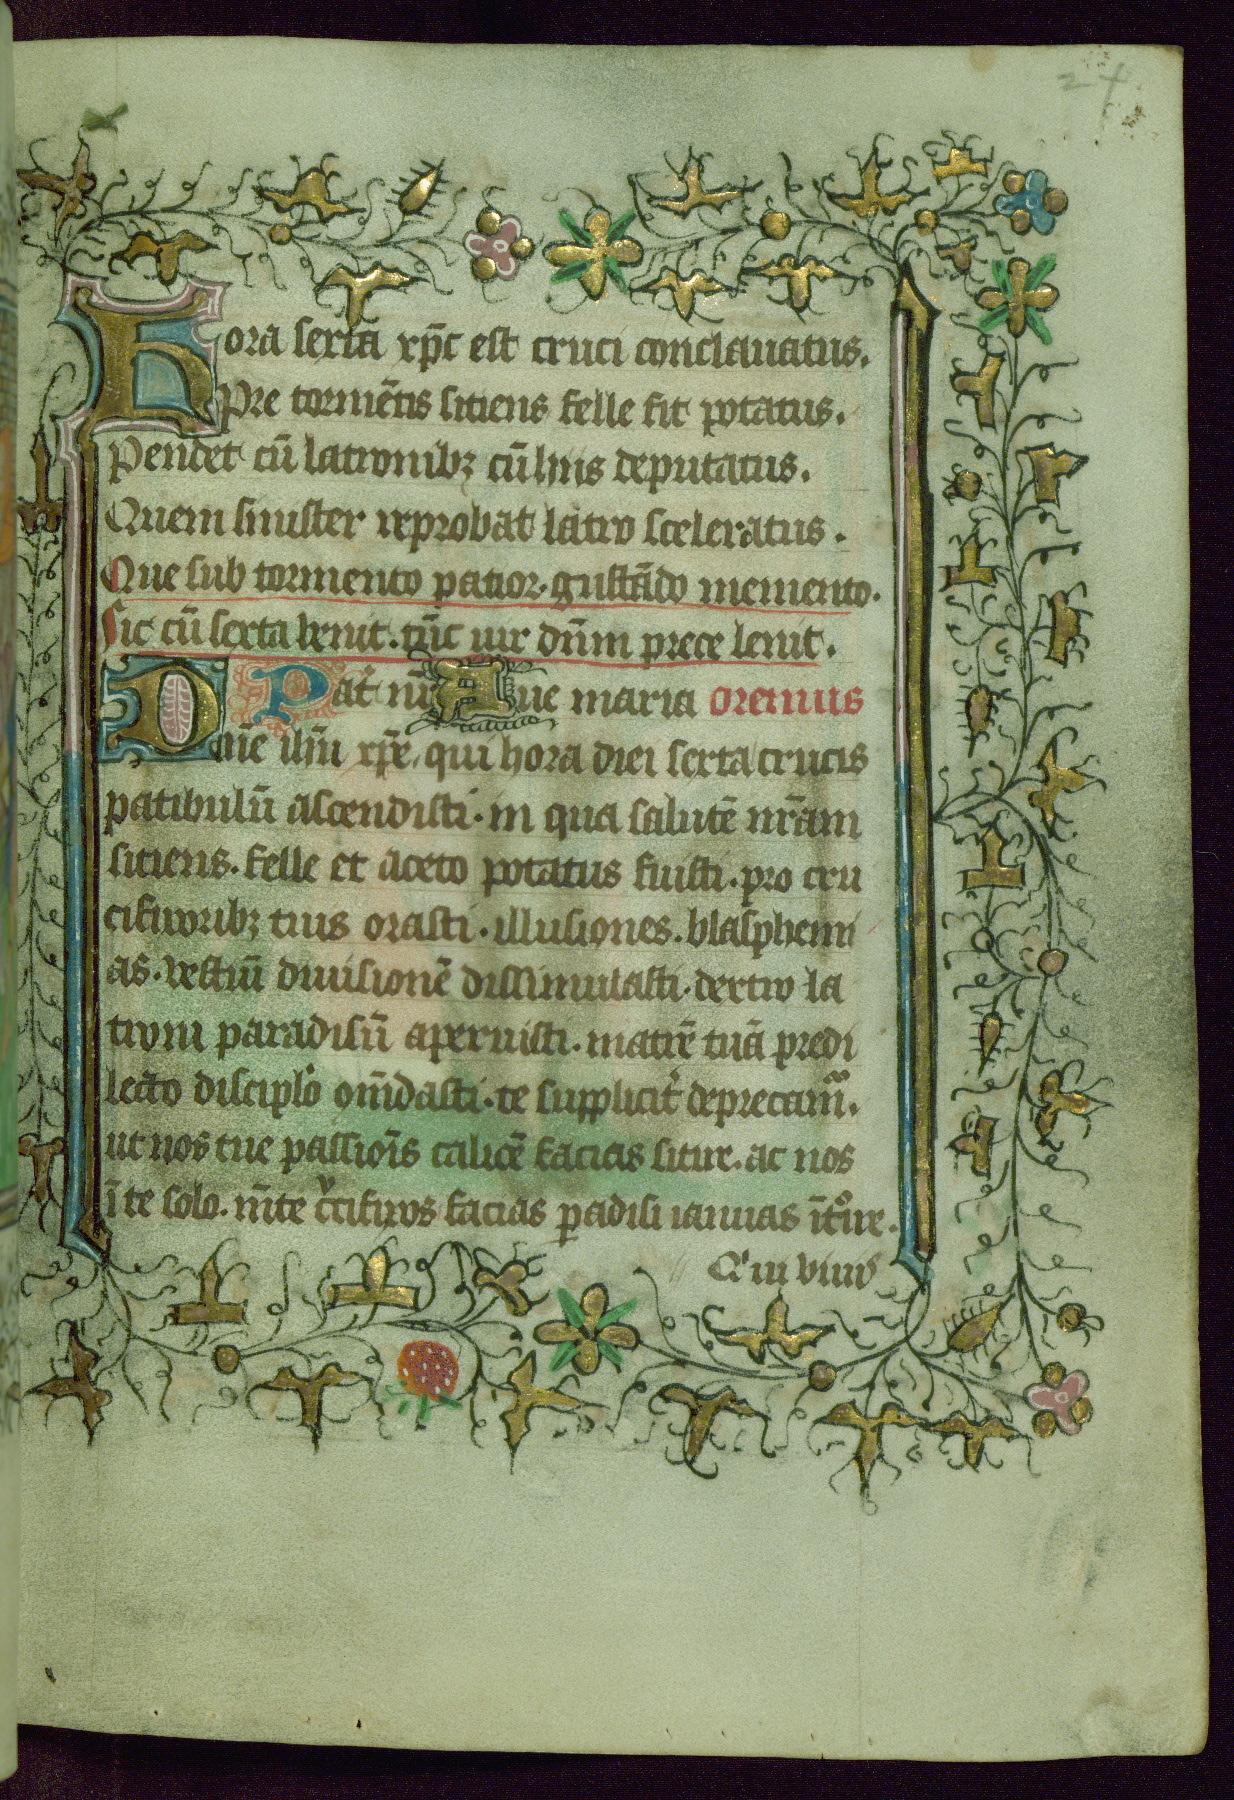 24.
Hora sexta xp̄c est cruci conclauatus.
Pre tormētis sitiens felle fit potatus.
Pendet cū latronibꝫ cū hijs deputatus.
Quem sinister reprobat latro sceleratus.
Que sub tormento patior. gustādo memento.
Sic cū sexta venit. tūc uir dn̄m prece lenit.
Pat̄ nr̄ Aue maria oremus
Dn̄e ih̄u xp̄e, qui hora diei sexta crucis
patibulū ascendisti. in qua salutē nr̄am
sitiens. felle et aceto potatus fuisti. pro cru
cifixoribꝫ tuis orasti. illusiones. blasphemi
as. vestiū diuisionē dissimulasti. dextro la
troni paradisū aperuisti. matrē tuā predi
lecto discipl̄o om̄dasti. te supplicit̄ deprecam̄.
ut nos tue passiōis calicē facias sitire. ac nos
ī te solo. m̄te facias ianuas
Qui viuis